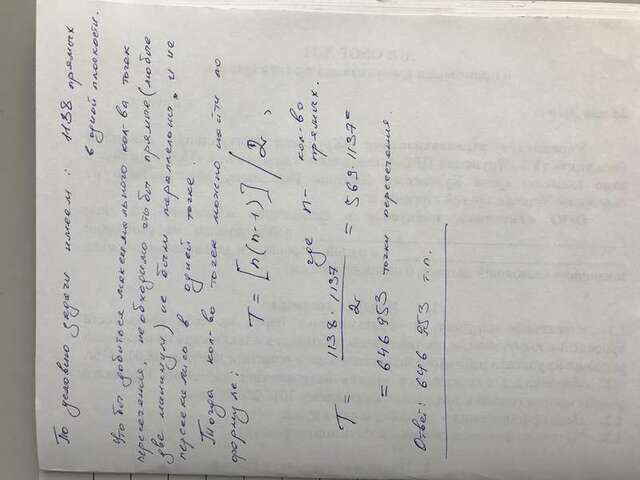 По условию задачи имеем: 1138 прямых
в одной плоскости.
Что бы добиться максимального кол-ва точек
пересечения, необходимо что бы прямые (любые
две минимум) не были параллельны, и не
пересекались в одной точке.
Тогда кол-во точек можно найти по
формуле:
T = [n(n-1)] / 2,
где n- кол-во
прямых.
T = 1138 · 1137 / 2 = 569 · 1137 =
= 646 953 точки пересечения.
Ответ: 646 953 т.п.